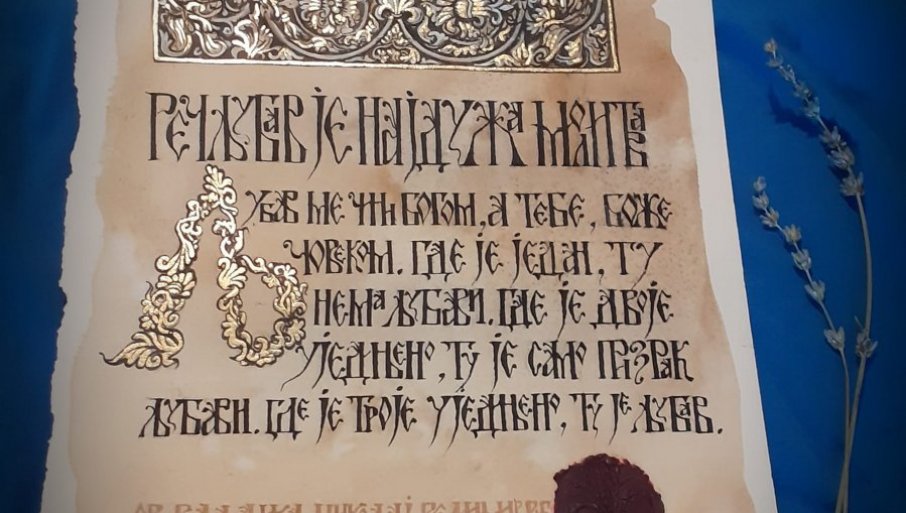 РЕЧ ЉУБАВ ЈЕ НАЈДУЖА МОЛИТВА
ЉУБАВ МЕ ЧИНИ БОГОМ, А ТЕБЕ, БОЖЕ
ЧОВЕКОМ. ГДЕ ЈЕ ЈЕДАН, ТУ
НЕМА ЉУБАВИ. ГДЕ ЈЕ ДВОЈЕ
УЈЕДИЊЕНО, ТУ ЈЕ САМО ПРИЗРАК
ЉУБАВИ. ГДЕ ЈЕ ТРОЈЕ УЈЕДИЊЕНО, ТУ ЈЕ ЉУБАВ.